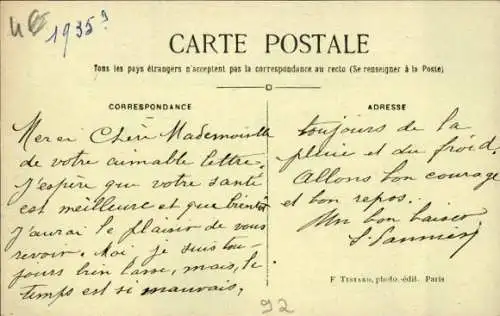 1935?
CARTE POSTALE
Tous les pays étrangers n'acceptent pas la correspondance au recto (Se renseigner à la Poste)
CORRESPONDANCE
Merci Chère Mademoiselle
de votre aimable lettre.
J'espère que votre santé
est meilleure et que bientôt
j'aurai le plaisir de vous
revoir. Moi je suis tou-
jours bien lasse, mais, le
temps est si mauvais,
ADRESSE
toujours de la
pluie et du froid.
Allons bon courage
et bon repos.
Un bon baiser
F Testard, photo.-édit. Paris
92